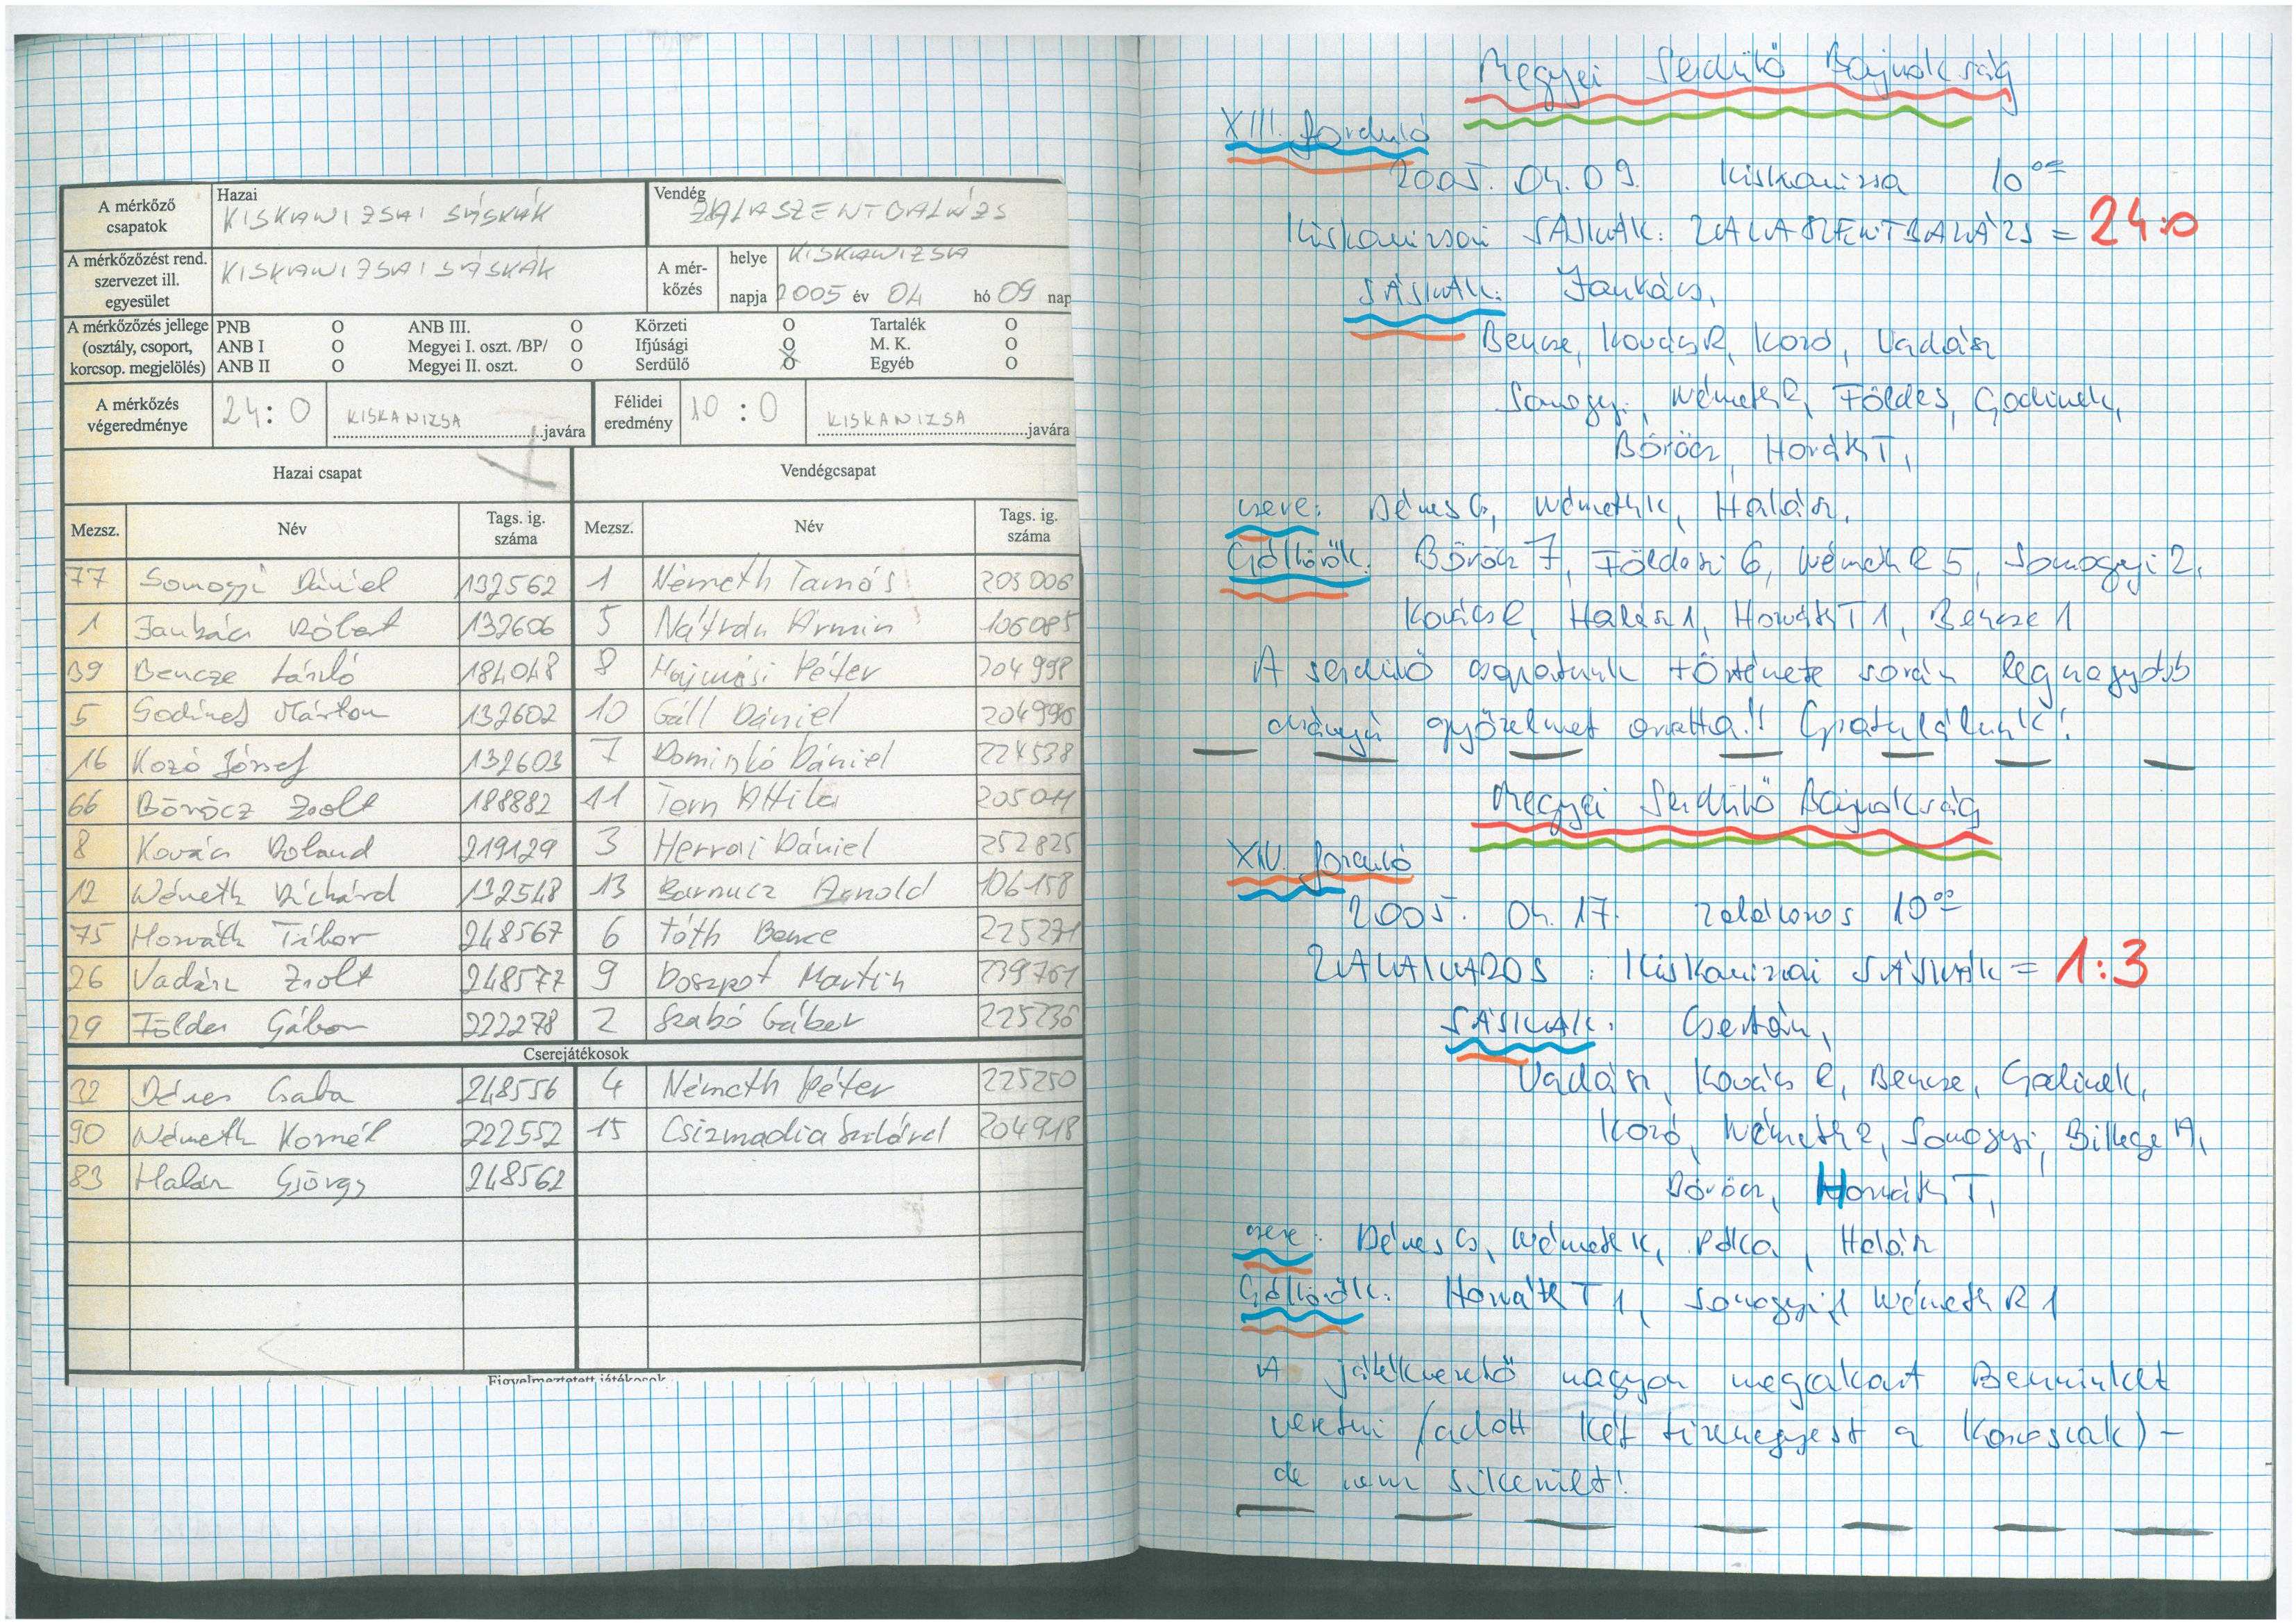 A mérkőző csapatok
Hazai
KISKANIZSAI SÁSKÁK
Vendég
ZALASZENTBALÁZS
A mérkőzőzést rend. szervezet ill. egyesület
KISKANIZSAI SÁSKÁK
A mérkőzés
helye KISKANIZSA
napja 2005 év 04 hó 09 nap
A mérkőzőzés jellege (osztály, csoport, korcsop. megjelölés)
PNB O ANB III. O Körzeti O Tartalék O
ANB I O Megyei I. oszt. /BP/ O Ifjúsági O M. K. O
ANB II O Megyei II. oszt. O Serdülő O Egyéb O
A mérkőzés végeredménye 24:0 KISKANIZSA javára Félidei eredmény 10:0 KISKANIZSA javára
Hazai csapat Vendégcsapat
Mezsz. Név Tags. ig. száma Mezsz. Név Tags. ig. száma
77 Somogyi Dániel 132562 1 Németh Tamás 203006
1 Jankács Róbert 132606 5 Nátrán Ármin 106085
39 Bencze László 184048 8 Hajmási Péter 204998
5 Godinek Márton 132602 10 Gáll Dániel 204996
16 Kozó József 132603 7 Dominkó Dániel 224538
66 Böröcz Zsolt 188882 11 Tern Attila 205011
8 Kovács Roland 219129 3 Herrai Dániel 252825
12 Németh Richárd 132548 13 Barnucz Arnold 106158
75 Horváth Tibor 248567 6 Tóth Bence 225271
26 Vadász Zsolt 248577 9 Doszpot Martin 239761
29 Földes Gábor 222278 2 Szabó Gábor 225236
Cserejátékosok
32 Dénes Csaba 248556 4 Németh Péter 225250
90 Németh Kornél 222552 15 Csizmadia Szilárd 204918
83 Halász György 248562
Figyelmeztetett játékosok
Megyei Serdülő Bajnokság
XIII. forduló
2005. 04. 09. Kiskanizsa 10⁰⁰
Kiskanizsai SÁSKÁK : ZALASZENTBALÁZS = 24:0
SÁSKÁK: Jankács,
Bencze, Kovács R, Kozó, Vadász
Somogyi, Németh R, Földes, Godinek,
Böröcz, Horváth T,
csere: Dénes Cs, Németh K, Halász.
Góllövők: Böröcz 7, Földesi 6, Németh R 5, Somogyi 2,
Kovács R, Halász 1, Horváth T 1, Bencze 1
A serdülő csapatunk története során legnagyobb
arányú győzelmet aratta!! Gratulálunk!
Megyei Serdülő Bajnokság
XIV. forduló
2005. 04. 17. Zalakaros 10⁰⁰
ZALAKAROS : Kiskanizsai SÁSKÁK = 1:3
SÁSKÁK: Csertán,
Vadász, Kovács R, Bencze, Godinek,
Kozó, Németh R, Somogyi, Billege A,
Böröcz, Horváth T,
csere: Dénes Cs, Németh K, Pólka, Halász
Góllövők: Horváth T 1, Somogyi 1 Németh R 1
A játékvezető nagyon megakart Bennünket
veretni (adott két tizenegyest a Karosiak) -
de nem sikerült!